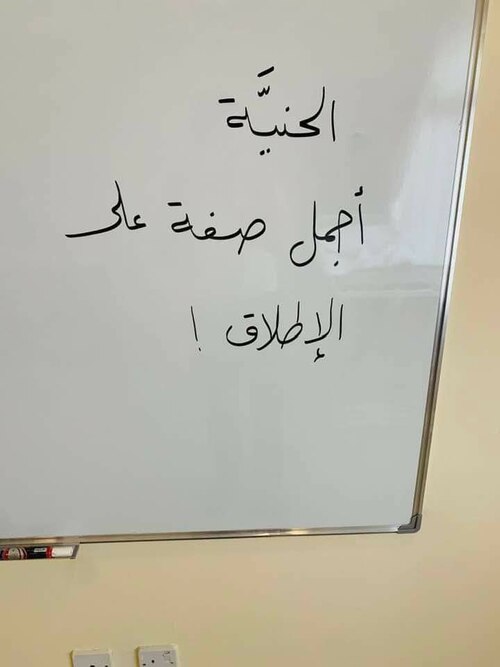 الحنيَّة
أجمل صفة على
الإطلاق !